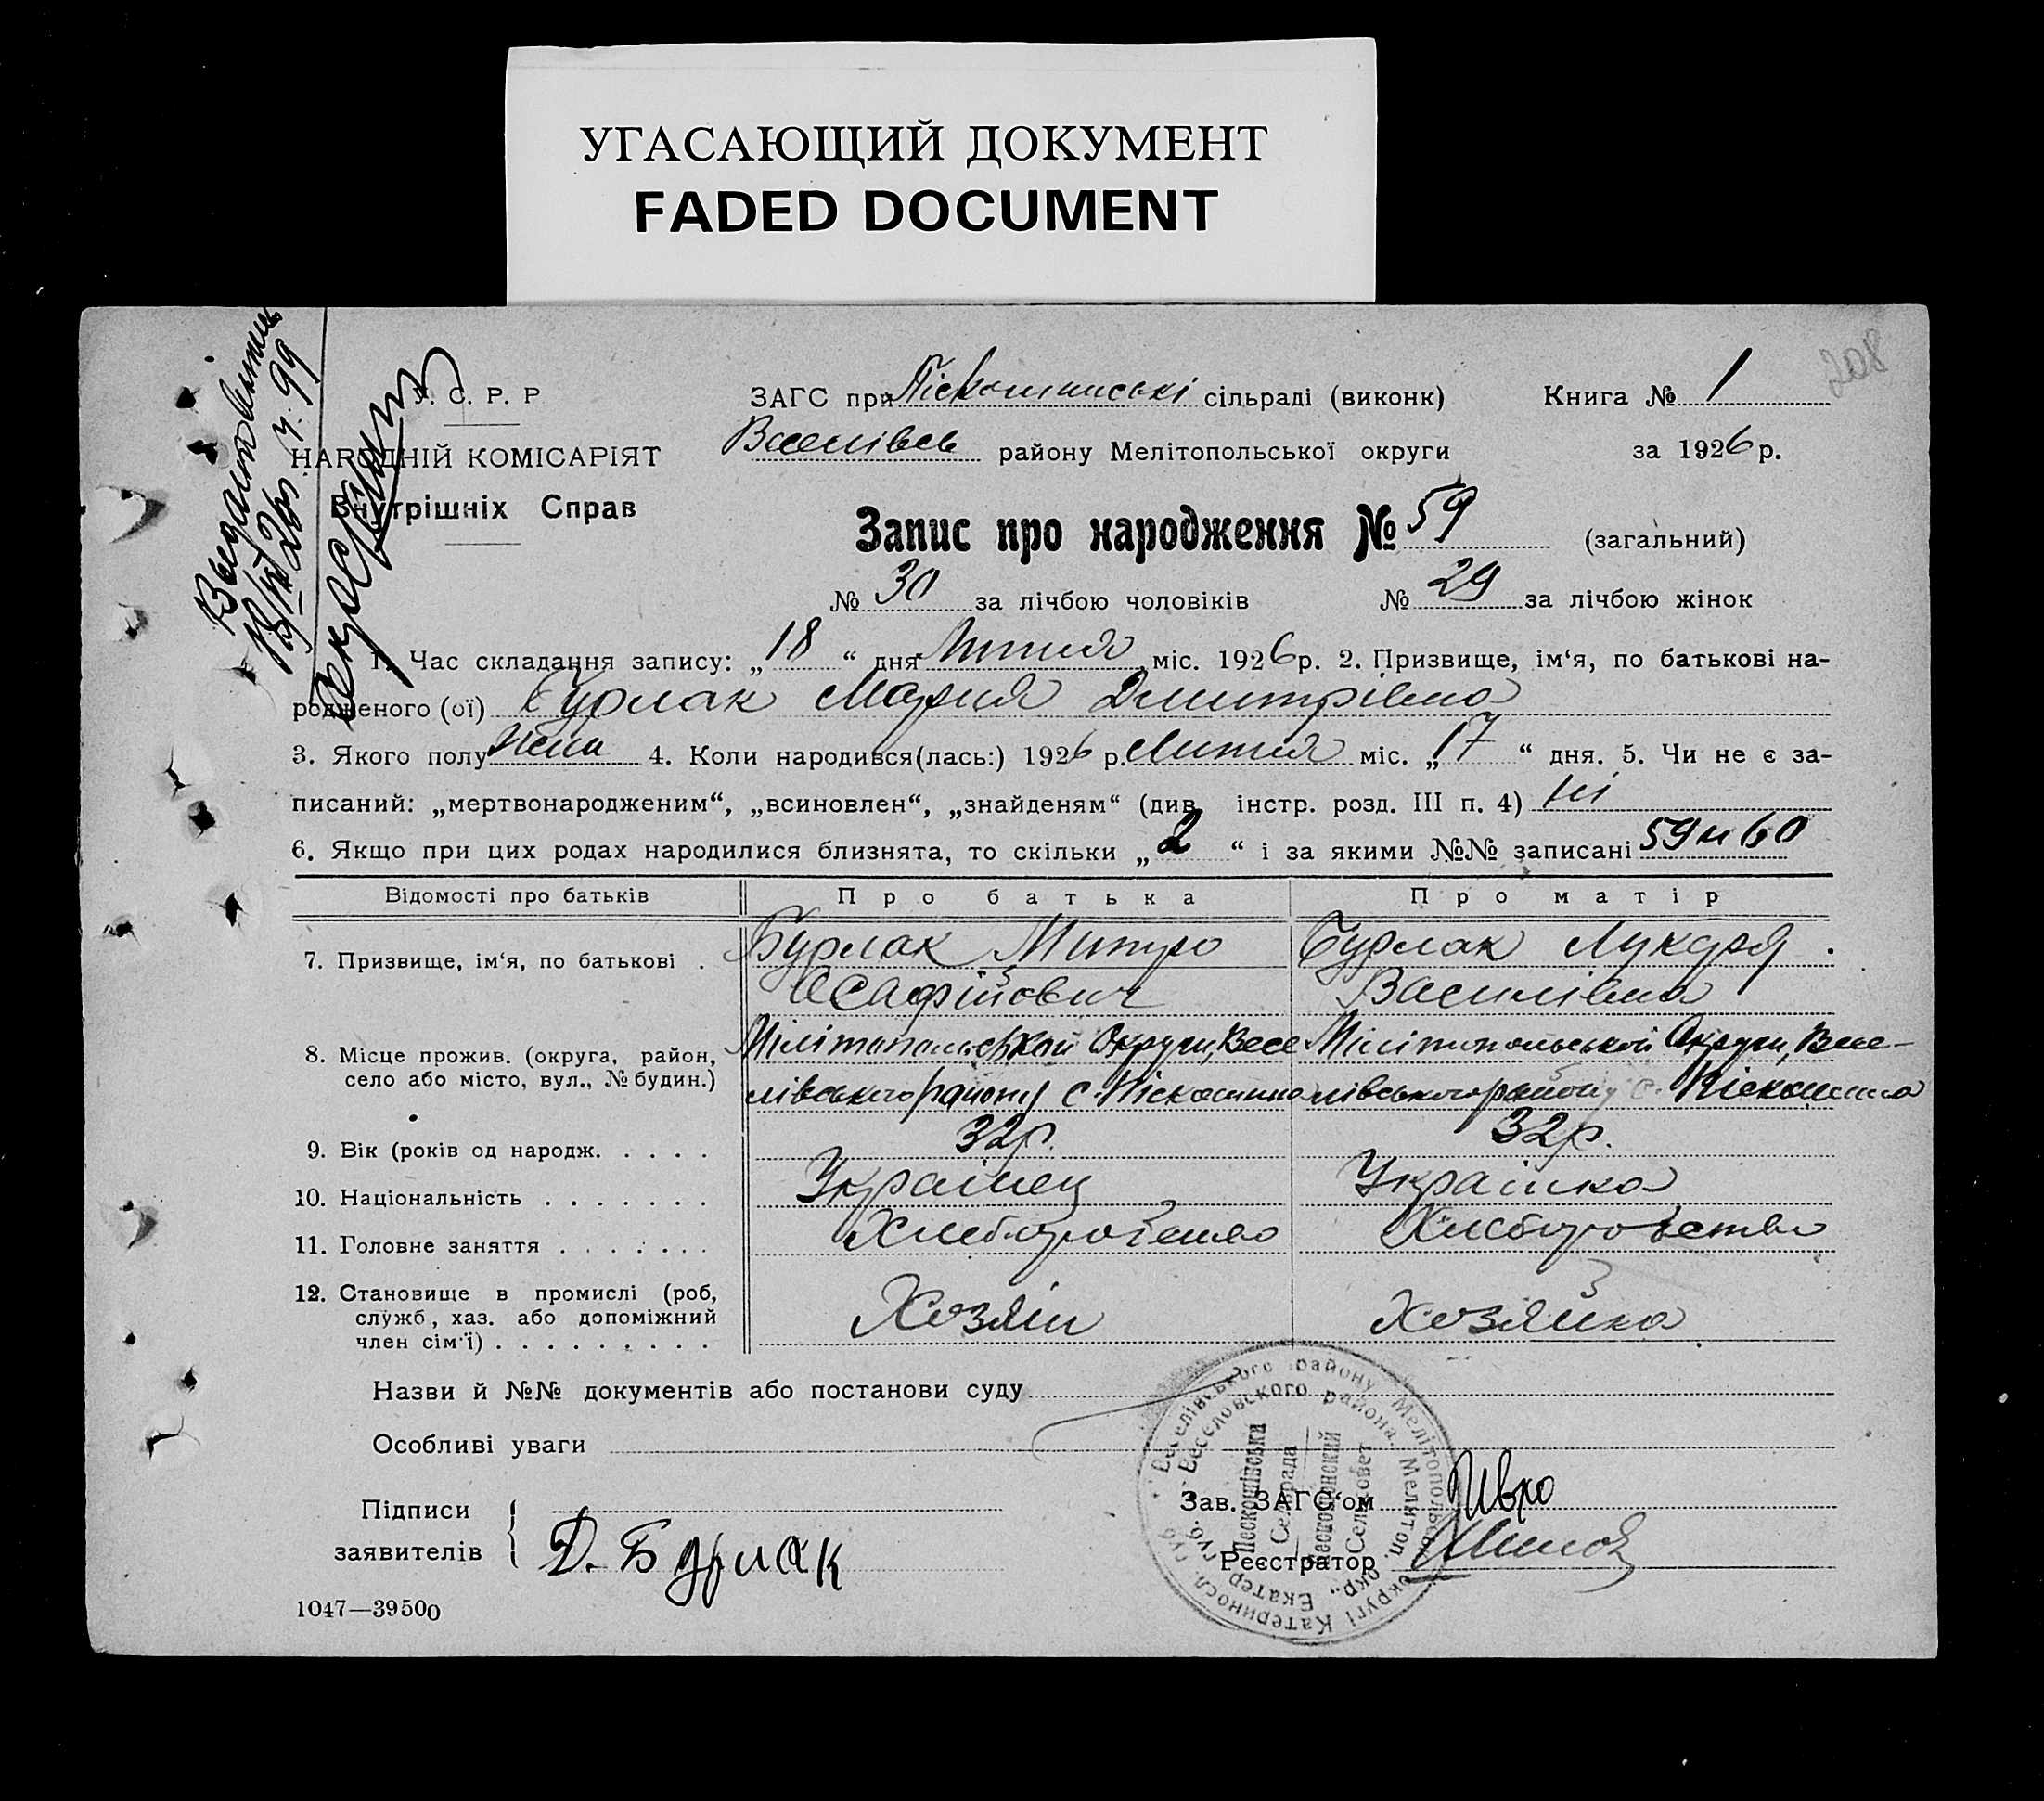 УГАСАЮЩИЙ ДОКУМЕНТ
FADED DOCUMENT
208
У. С. Р. Р
НАРОДНІЙ КОМІСАРІЯТ
Внутрішніх Справ
ЗАГС при Піскошинські сільраді (виконк)
Книга № 1
Веселівськ району Мелітопольської округи
за 1926 р.
Запис про народження № 59 (загальний)
№ 30 за лічбою чоловіків № 29 за лічбою жінок
1. Час складання запису: „18“ дня Липня міс. 1926р. 2. Призвище, ім‘я, по батькові на-
родженого (ої) Бурлак Мария Дмитрівна
3. Якого полу жін 4. Коли народився(лась:) 1926 р. Липня міс. „17“ дня. 5. Чи не є за-
писаний: „мертвонародженим“, „всиновлен“, „знайденям“ (див, інстр. розд. III п. 4) ні
6. Якщо при цих родах народилися близнята, то скільки „2“ і за якими №№ записані 59 и 60
Відомості про батьків Про батька Про матір
7. Призвище, ім‘я, по батькові . Бурлак Митро Бурлак Лукеря .
Асафійович Василівна
8. Місце прожив. (округа, район, Мілітопольської Округи, Весе Мілітопольської Округи, Весе-
село або місто, вул., № будин.) лівського району с. Піскошина лівського району с. Піскошина
9. Вік (років од народж. . . . . 32р. 32р.
10. Національність . . . . . . . Українец Українка
11. Головне заняття . . . . . . . Хлеборобство Хлеборобство
12. Становище в промислі (роб,
служб, хаз. або допоміжний Хозяїн Хозяйка
член сім‘ї) . . . . . . . . .
Назви й №№ документів або постанови суду
Особливі уваги
Підписи
заявителів Д. Бурлак
Зав. ЗАГС‘ом
Реєстратор
Веселівського району Мелітопольськ округі Катериносл губ.
Веселовского района. Мелитоп. окр., Екатер губ.
Пескошівська
Сельрада
Пескошинский
Сельсовет
1047—39500